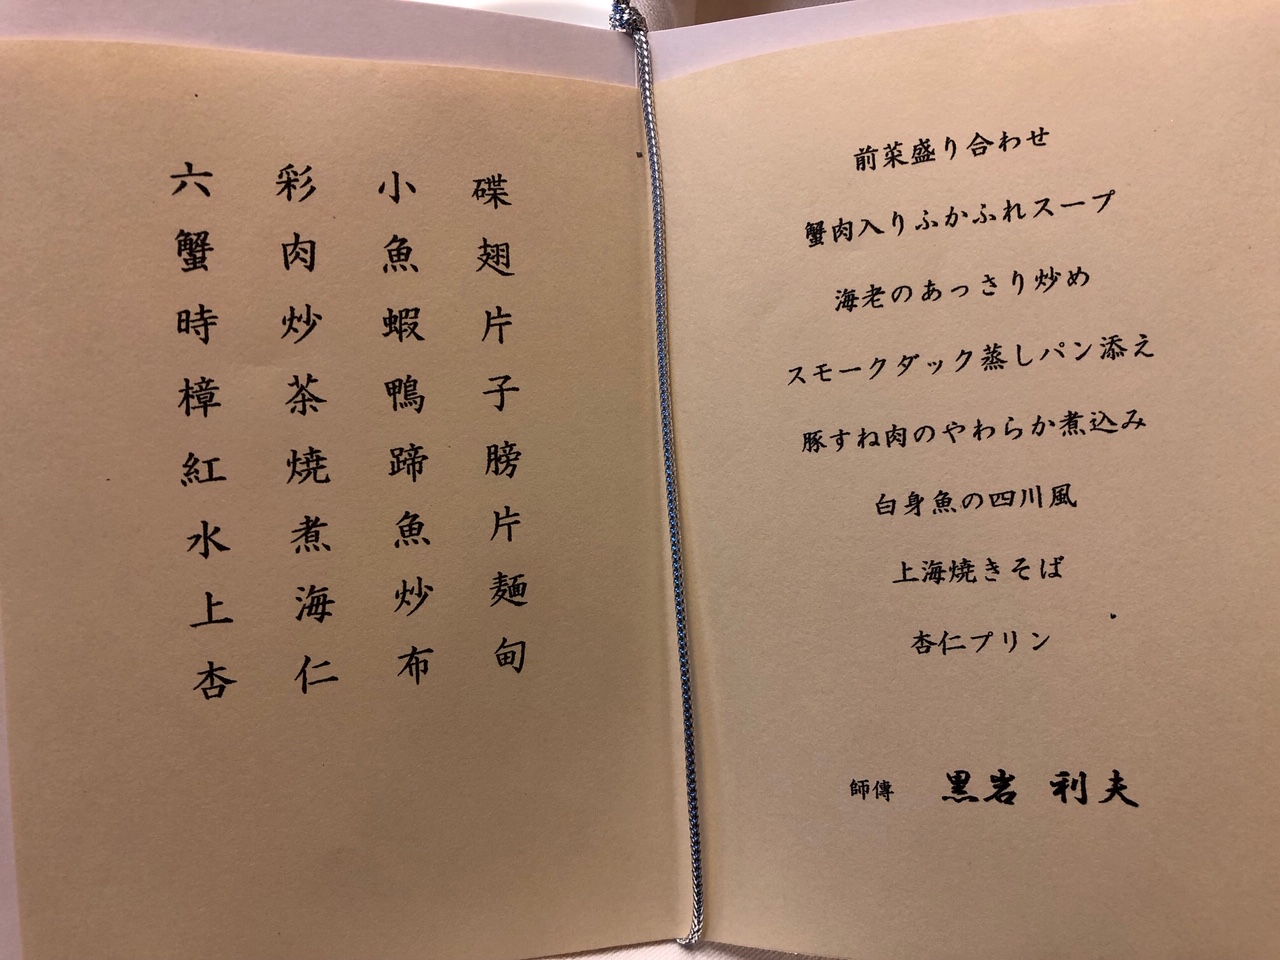 六彩小碟
蟹肉魚翅
時炒蝦片
樟茶鴨子
紅燒蹄膀
水煮魚片
上海炒麺
杏仁布甸
前菜盛り合わせ
蟹肉入りふかふれスープ
海老のあっさり炒め
スモークダック蒸しパン添え
豚すね肉のやわらか煮込み
白身魚の四川風
上海焼きそば
杏仁プリン
師傳 黒岩 利夫